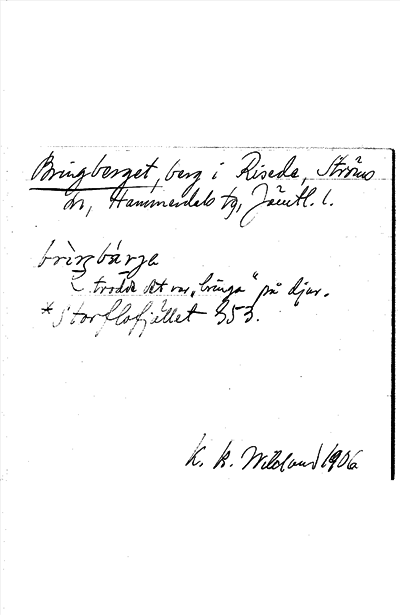 Bringberget, berg i Risede, Ströms
sn, Hammerdals tg, Jämtl. l.
brìŋbárja
trodde det var "bringa" på djur.
*Storflofjället 353.
K. R. Wiklund 1906